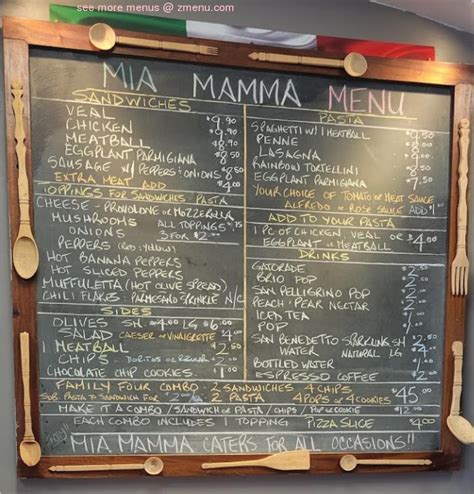 see more menus @ zmenu.com
MIA MAMMA MENU
SANDWICHES
VEAL $9.90
CHICKEN $9.90
MEATBALL $8.50
EGGPLANT PARMIGIANA $8.50
SAUSAGE w/ PEPPERS + ONIONS $8.50
EXTRA MEAT ADD $4.00
TOPPINGS FOR SANDWICHES PASTA
CHEESE - PROVOLONE OR MOZZERELLA
MUSHROOMS ALL TOPPINGS
ONIONS 3 FOR $2.00
PEPPERS (RED + YELLOW)
HOT BANANA PEPPERS
HOT SLICED PEPPERS
MUFFULETTA (HOT OLIVE SPREAD)
CHILI FLAKES - PARMESANO SPRINKLE N/C
SIDES
OLIVES SM $4.00 LG $6.00
SALAD CAESER OR VINAIGRETTE $4.00
1 MEATBALL $2.50
CHIPS - DORITOS OR REGULAR $2.00
CHOCOLATE CHIP COOKIES $1.00
PASTA
SPAGHETTI w/ 1 MEATBALL $9.50
PENNE
LASAGNA
RAINBOW TORTELLINI
EGGPLANT PARMIGIANA $7.50
YOUR CHOICE OF TOMATO OR MEAT SAUCE
ALFREDO OR ROSE SAUCE ADD $1.00
ADD TO YOUR PASTA
1 PC OF CHICKEN, VEAL OR
EGGPLANT OR MEATBALL $4.00
DRINKS
GATORADE
BRIO POP
SAN PELLIGRINO POP
PEACH - PEAR NECTAR
ICED TEA
POP
SAN BENEDETTO SPARKLING SM
WATER NATURAL LG
BOTTLED WATER
ESPRESSO COFFEE $2.00
FAMILY FOUR COMBO - 2 SANDWICHES 4 CHIPS
SUB. PASTA TO SANDWICH FOR 2 PASTA 4 POPS OR 4 COOKIES $45.00
MAKE IT A COMBO / SANDWICH OR PASTA / CHIPS / POP OR COOKIE $12.00
EACH COMBO INCLUDES 1 TOPPING PIZZA SLICE $4.00
MIA MAMMA CATERS FOR ALL OCCASIONS!!